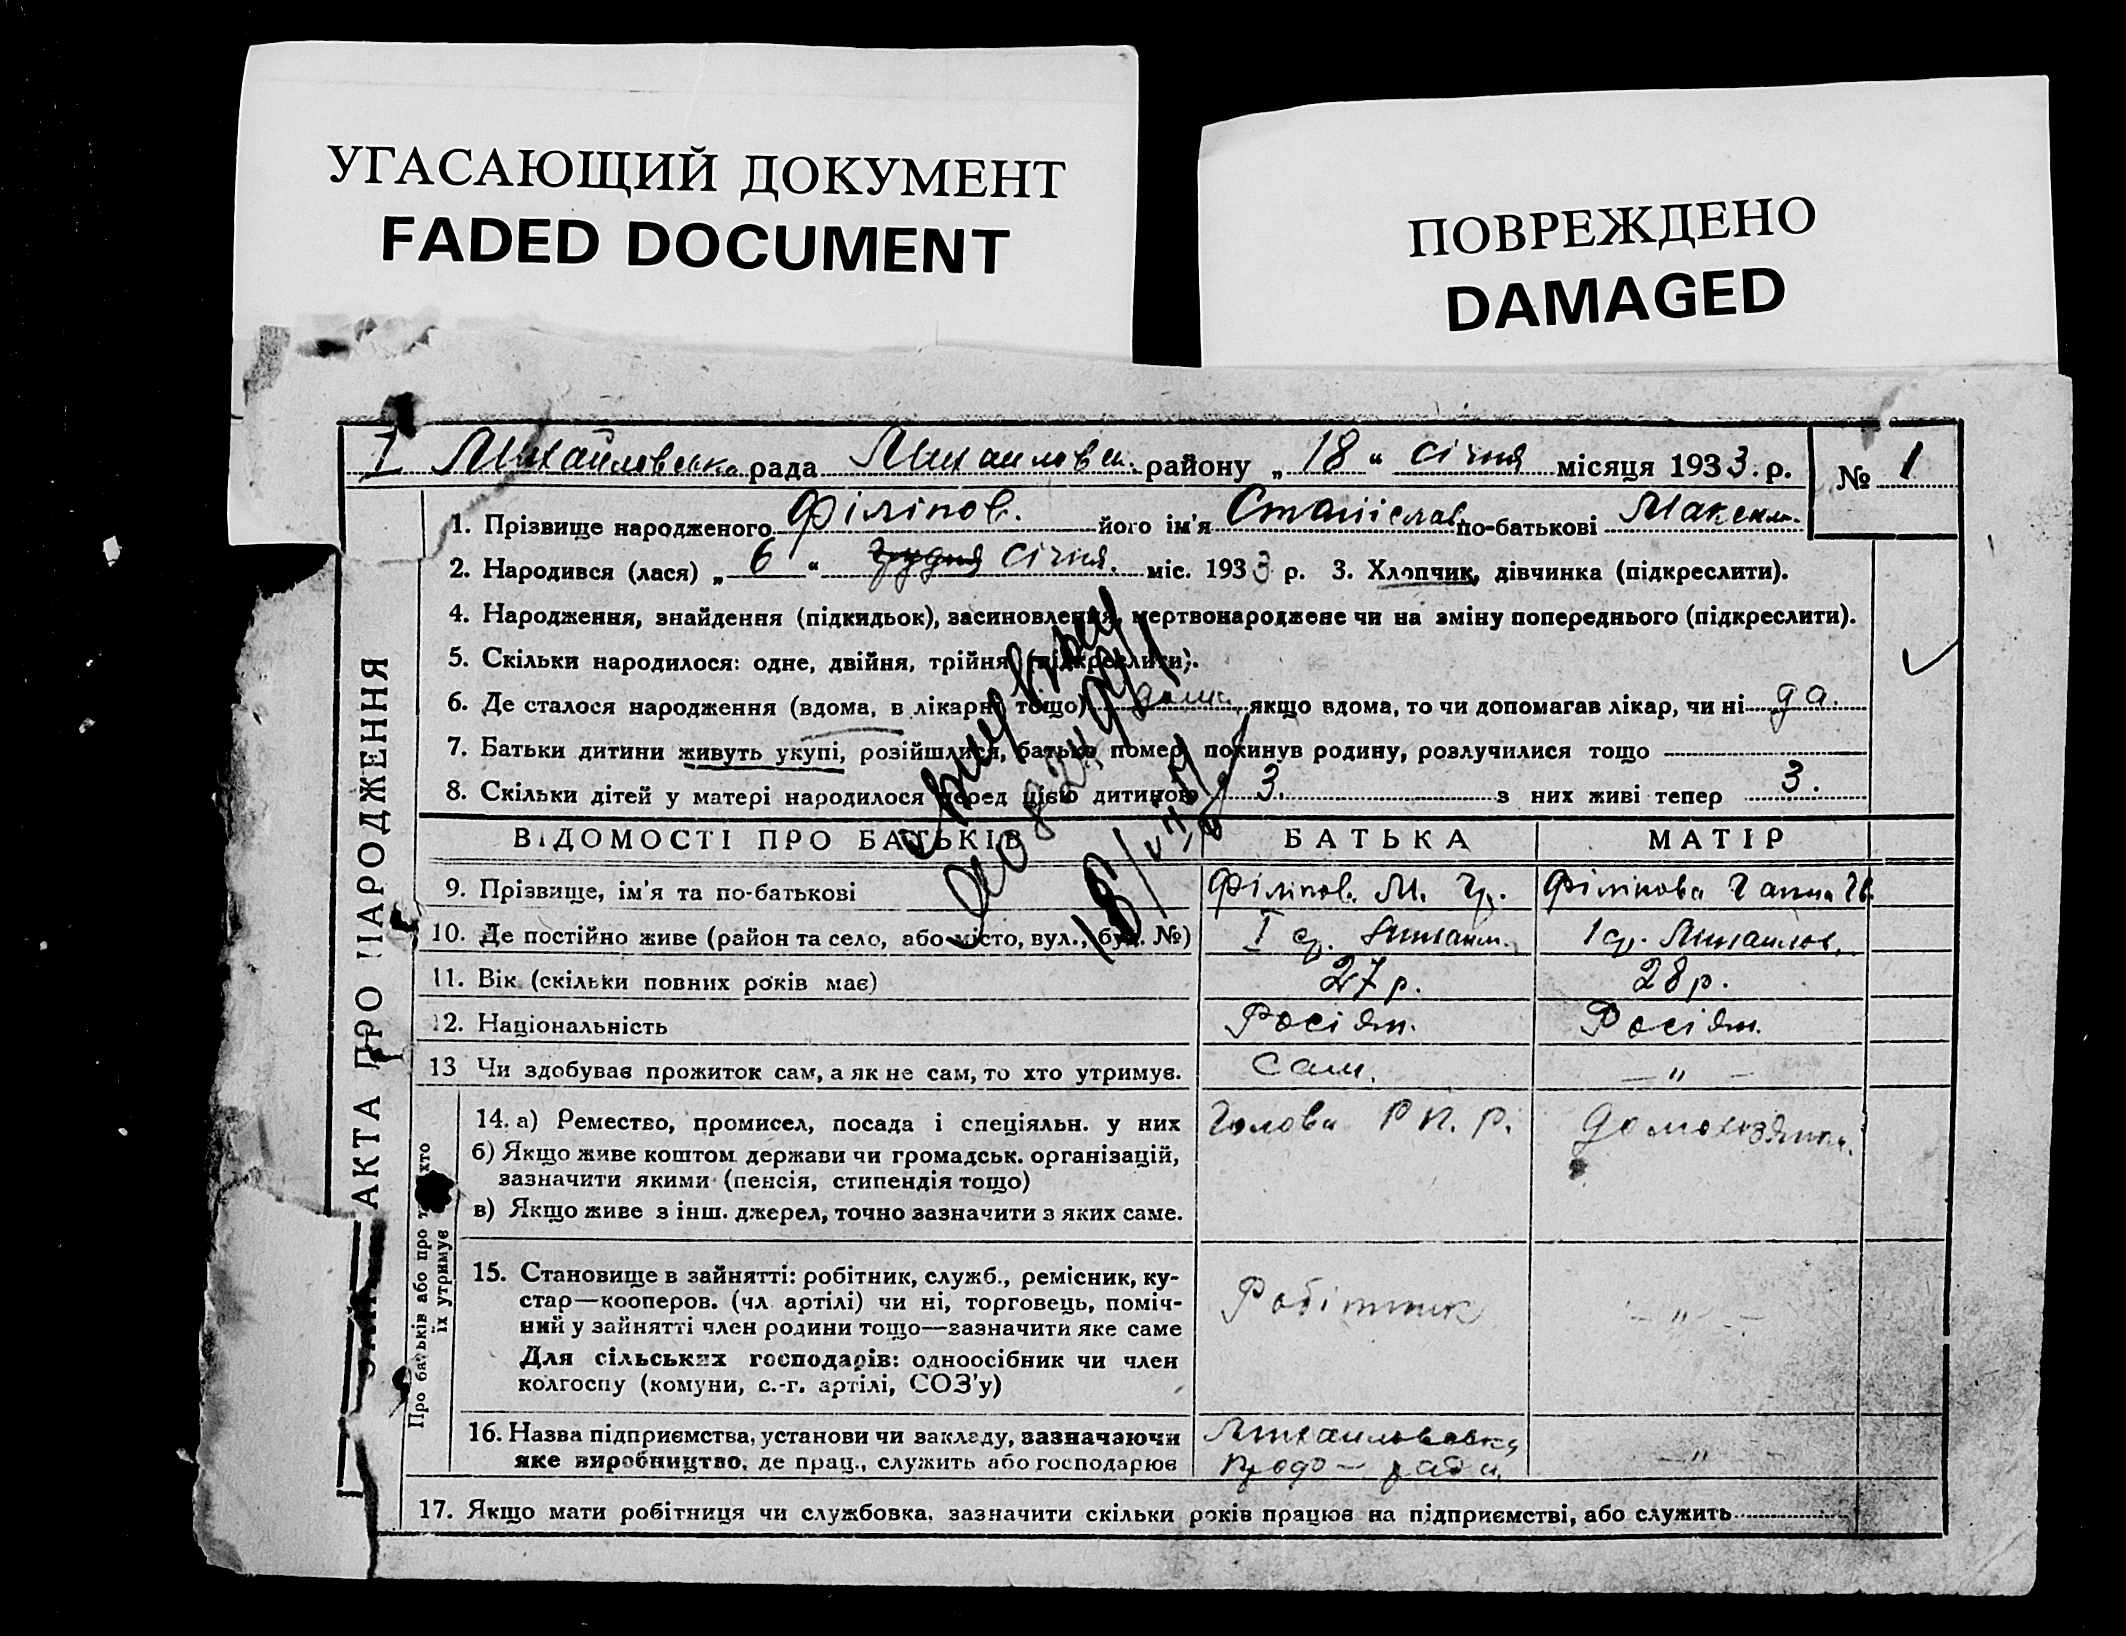 УГАСАЮЩИЙ ДОКУМЕНТ
FADED DOCUMENT
ПОВРЕЖДЕНО
DAMAGED
I Михайловська рада Михаиловск. району „ 18 “ січня місяця 1933. р. № 1
АКТА ПРО НАРОДЖЕННЯ
1. Прізвище народженого Філіпов. його ім'я Станіслав по-батькові Максим.
2. Народився (лася) „ 6 “ грудня січня. міс. 1933 р. 3. Хлопчик, дівчинка (підкреслити).
4. Народження, знайдення (підкидьок), засиновлення, мертвонароджене чи на зміну попереднього (підкреслити).
5. Скільки народилося: одне, двійня, трійня (підкреслити).
6. Де сталося народження (вдома, в лікарні тощо) якщо вдома, то чи допомагав лікар, чи ні да.
7. Батьки дитини живуть укупі, розійшлися, батько помер, покинув родину, розлучилися тощо
8. Скільки дітей у матері народилося перед цією дитиною 3. з них живі тепер 3.
ВІДОМОСТІ ПРО БАТЬКІВ БАТЬКА МАТІР
9. Прізвище, ім'я та по-батькові Філіпов. М. Гр. Філіпова Ганна
10. Де постійно живе (район та село, або місто, вул., буд. №) I ср. Михаил. 1 ср. Михаилов.
11. Вік (скільки повних років має) 27 р. 28 р.
12. Національність Росіян. Росіян.
13 Чи здобував прожиток сам, а як не сам, то хто утримує. Сам. — " —
Про батьків або про тих хто
їх утримує
14. а) Ремество, промисел, посада і спеціяльн. у них Голова Р П. Р. домохозяйк.
б) Якщо живе коштом держави чи громадськ. організацій,
зазначити якими (пенсія, стипендія тощо)
в) Якщо живе з інш. джерел, точно зазначити з яких саме.
15. Становище в зайнятті: робітник, служб., ремісник, ку-
стар—кооперов. (чл артілі) чи ні, торговець, поміч- Робітник — " —
ний у зайнятті член родини тощо—зазначити яке саме
Для сільських господарів: одноосібник чи член
колгоспу (комуни, с.-г. артілі, СОЗ'у)
16. Назва підприємства, установи чи закладу, зазначаючи Михаиловська
яке виробництво, де прац., служить або господарює — "
17. Якщо мати робітниця чи службовка, зазначити скільки років працює на підприємстві, або служить